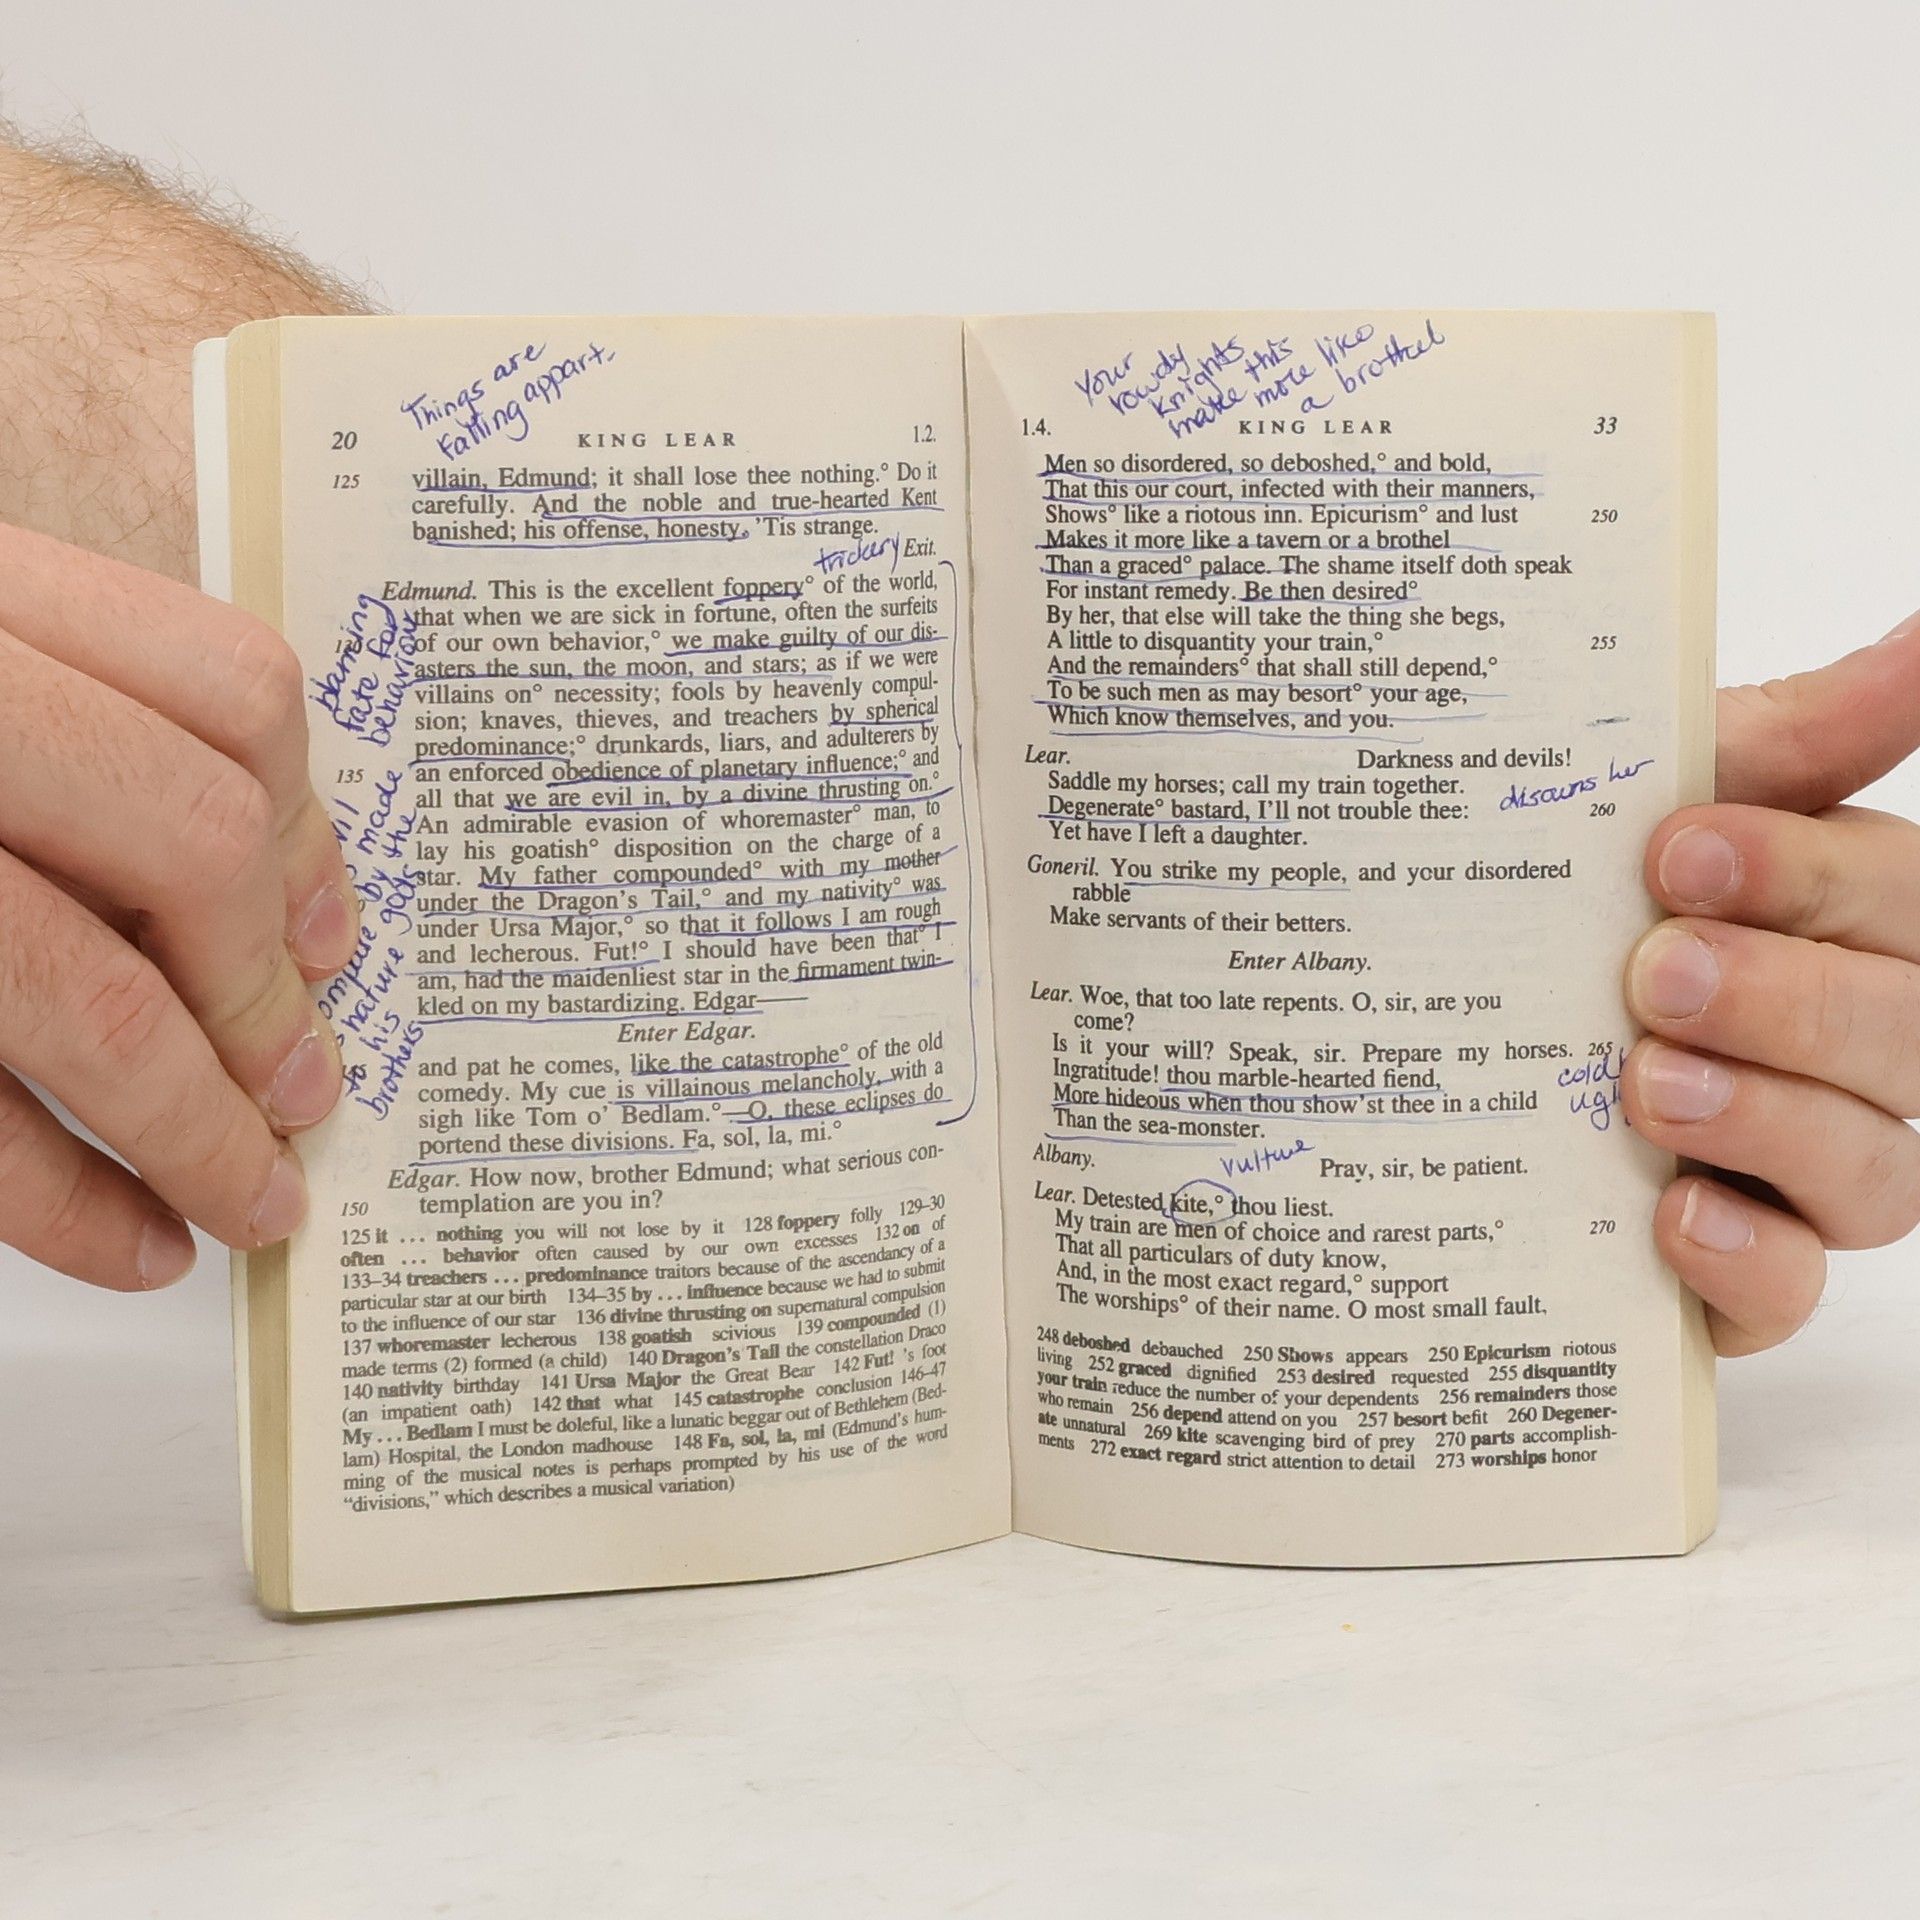 Things are
Falling appart.
20 KING LEAR 1.2.
125 villain, Edmund; it shall lose thee nothing.° Do it
carefully. And the noble and true-hearted Kent
banished; his offense, honesty. 'Tis strange.
trickery Exit.
Edmund. This is the excellent foppery° of the world,
that when we are sick in fortune, often the surfeits
of our own behavior,° we make guilty of our dis-
asters the sun, the moon, and stars; as if we were
villains on° necessity; fools by heavenly compul-
sion; knaves, thieves, and treachers by spherical
predominance;° drunkards, liars, and adulterers by
135 an enforced obedience of planetary influence;° and
all that we are evil in, by a divine thrusting on.°
An admirable evasion of whoremaster° man, to
lay his goatish° disposition on the charge of a
star. My father compounded° with my mother
under the Dragon's Tail,° and my nativity° was
under Ursa Major,° so that it follows I am rough
and lecherous. Fut!° I should have been that° I
am, had the maidenliest star in the firmament twin-
kled on my bastardizing. Edgar——
Enter Edgar.
and pat he comes, like the catastrophe° of the old
comedy. My cue is villainous melancholy, with a
sigh like Tom o' Bedlam.°—O, these eclipses do
portend these divisions. Fa, sol, la, mi.°
Edgar. How now, brother Edmund; what serious con-
150 templation are you in?
blaming
fate for
behaviour
made
by the
gods
nature
to his
brothers
125 it ... nothing you will not lose by it 128 foppery folly 129–30
often ... behavior often caused by our own excesses 132 on of
133–34 treachers ... predominance traitors because of the ascendancy of a
particular star at our birth 134–35 by ... influence because we had to submit
to the influence of our star 136 divine thrusting on supernatural compulsion
137 whoremaster lecherous 138 goatish scivious 139 compounded (1)
made terms (2) formed (a child) 140 Dragon's Tail the constellation Draco
140 nativity birthday 141 Ursa Major the Great Bear 142 Fut! 's foot
(an impatient oath) 142 that what 145 catastrophe conclusion 146–47
My ... Bedlam I must be doleful, like a lunatic beggar out of Bethlehem (Bed-
lam) Hospital, the London madhouse 148 Fa, sol, la, mi (Edmund's hum-
ming of the musical notes is perhaps prompted by his use of the word
"divisions," which describes a musical variation)
Your
rowdy
knights
make this
more like
a brothel
1.4. KING LEAR 33
Men so disordered, so deboshed,° and bold,
That this our court, infected with their manners,
Shows° like a riotous inn. Epicurism° and lust 250
Makes it more like a tavern or a brothel
Than a graced° palace. The shame itself doth speak
For instant remedy. Be then desired°
By her, that else will take the thing she begs,
A little to disquantity your train,° 255
And the remainders° that shall still depend,°
To be such men as may besort° your age,
Which know themselves, and you.
Lear. Darkness and devils!
Saddle my horses; call my train together.
disowns her
Degenerate° bastard, I'll not trouble thee: 260
Yet have I left a daughter.
Goneril. You strike my people, and your disordered
rabble
Make servants of their betters.
Enter Albany.
Lear. Woe, that too late repents. O, sir, are you
come?
Is it your will? Speak, sir. Prepare my horses. 265
Ingratitude! thou marble-hearted fiend, cold
More hideous when thou show'st thee in a child
Than the sea-monster.
Albany. vulture Pray, sir, be patient.
Lear. Detested kite,° thou liest.
My train are men of choice and rarest parts,° 270
That all particulars of duty know,
And, in the most exact regard,° support
The worships° of their name. O most small fault,
248 deboshed debauched 250 Shows appears 250 Epicurism riotous
living 252 graced dignified 253 desired requested 255 disquantity
your train reduce the number of your dependents 256 remainders those
who remain 256 depend attend on you 257 besort befit 260 Degener-
ate unnatural 269 kite scavenging bird of prey 270 parts accomplish-
ments 272 exact regard strict attention to detail 273 worships honor